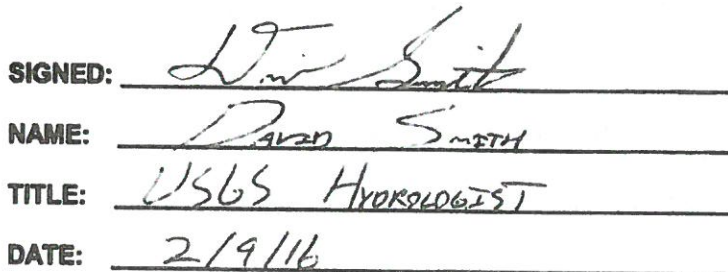 SIGNED: David Smith
NAME: DAVID SMITH
TITLE: USGS HYDROLOGIST
DATE: 2/9/16